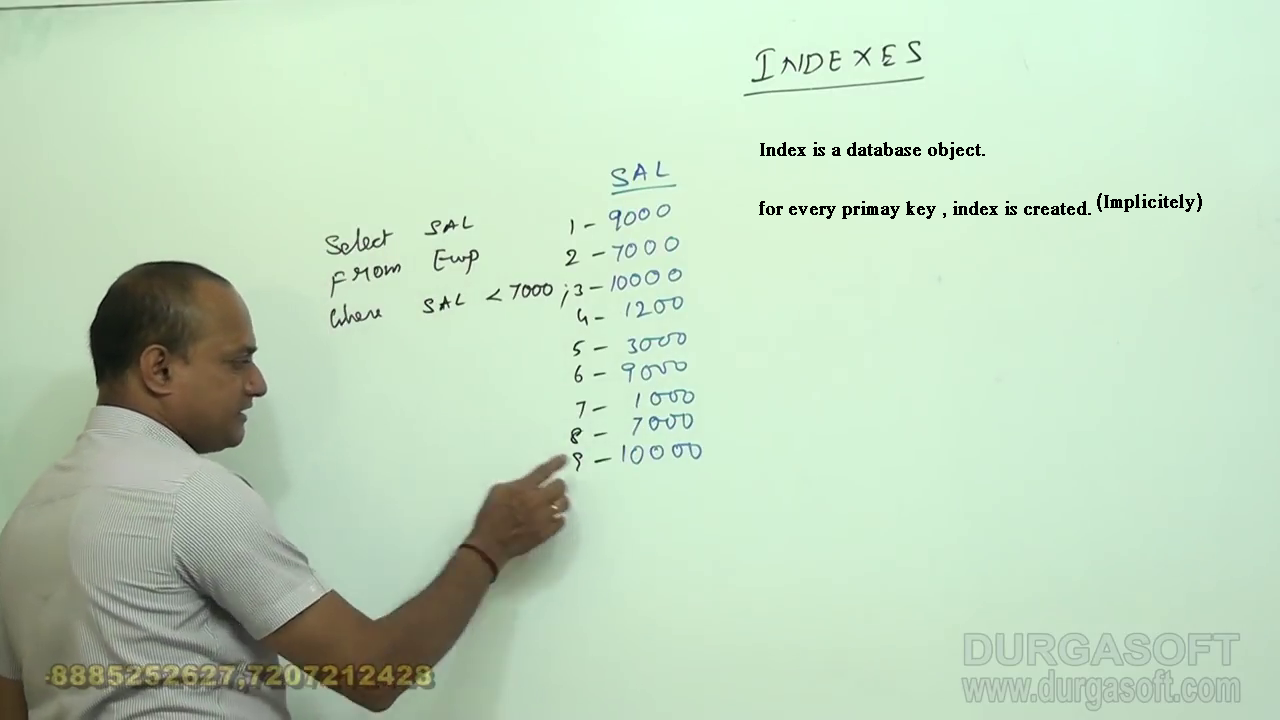 INDEXES
Index is a database object.
for every primay key , index is created. (Implicitely)
Select SAL
From Emp
Where SAL < 7000 ;
SAL
1 - 9000
2 - 7000
3 - 10000
4 - 1200
5 - 3000
6 - 9000
7 - 1000
8 - 7000
9 - 10000
-8885252627,7207212428
DURGASOFT
www.durgasoft.com